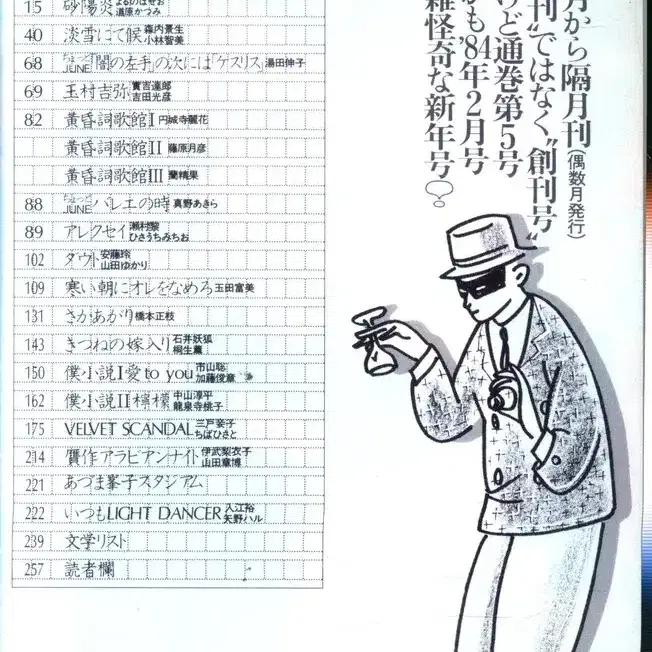 月から隔月刊(偶数月発行)
刊”ではなく“創刊号”
けど通巻第5号
かも'84年2月号
雑怪奇な新年号?
15 砂陽炎 よるのはせお 道原かつみ
40 淡雪にて候 森内景生 小林智美
68 ちょっとJUNE「闇の左手」の次には「ゲスリス」湯田伸子
69 玉村吉弥 實吉達郎 吉田光彦
82 黄昏詞歌館I 円城寺麗花
黄昏詞歌館II 藤原月彦
黄昏詞歌館III 蘭精果
88 ちょっとJUNE バレエの時 真野あきら
89 アレクセイ 瀬村駿 ひさうちみちお
102 ダウト 安藤玲 山田ゆかり
109 寒い朝にオレをなめろ 玉田富美
131 さかあがり 橋本正枝
143 きつねの嫁入り 石井妖狐 桐生薫
150 僕小説I 愛to you 市山聡 加藤俊章
162 僕小説II 檸檬 中山淳平 龍泉寺桃子
175 VELVET SCANDAL 三戸妾子 ちばひさと
214 贋作アラビアンナイト 伊武梨衣子 山田章博
221 あづま峯子スタジアム
222 いつもLIGHT DANCER 入江裕 矢野ハル
239 文学リスト
257 読者欄